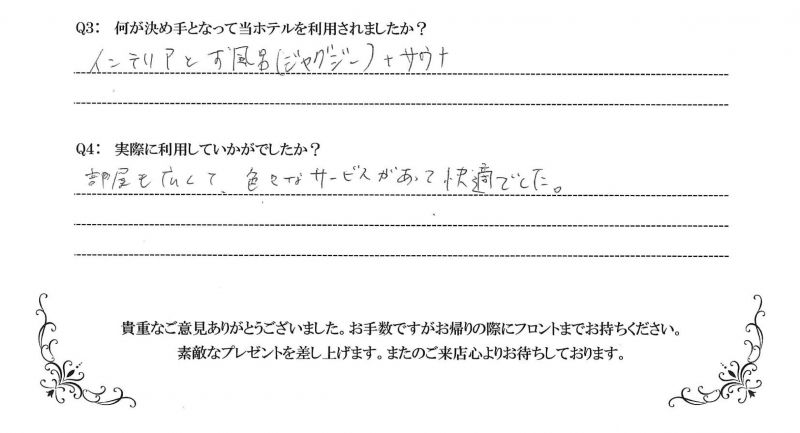 Q3： 何が決め手となって当ホテルを利用されましたか？
インテリアとお風呂(ジャグジー)+サウナ
Q4： 実際に利用していかがでしたか？
部屋も広くて、色々なサービスがあって快適でした。
貴重なご意見ありがとうございました。お手数ですがお帰りの際にフロントまでお持ちください。
素敵なプレゼントを差し上げます。またのご来店心よりお待ちしております。